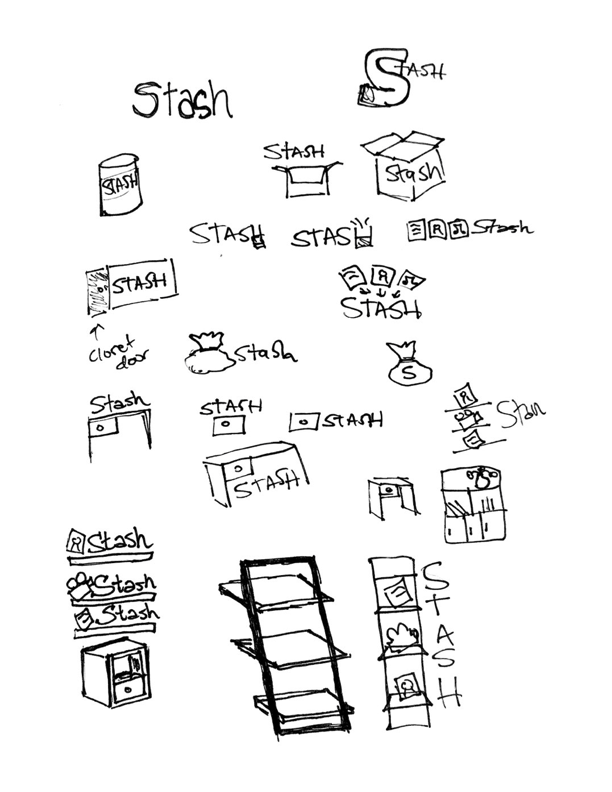 Stash
STASH
STASH
STASH
Stash
STASH
STASH
R Stash
STASH
R
STASH
closet
door
Stash
S
Stash
STASH
STASH
R
STASH
R Stash
Stash
Stash
S
T
A
S
H